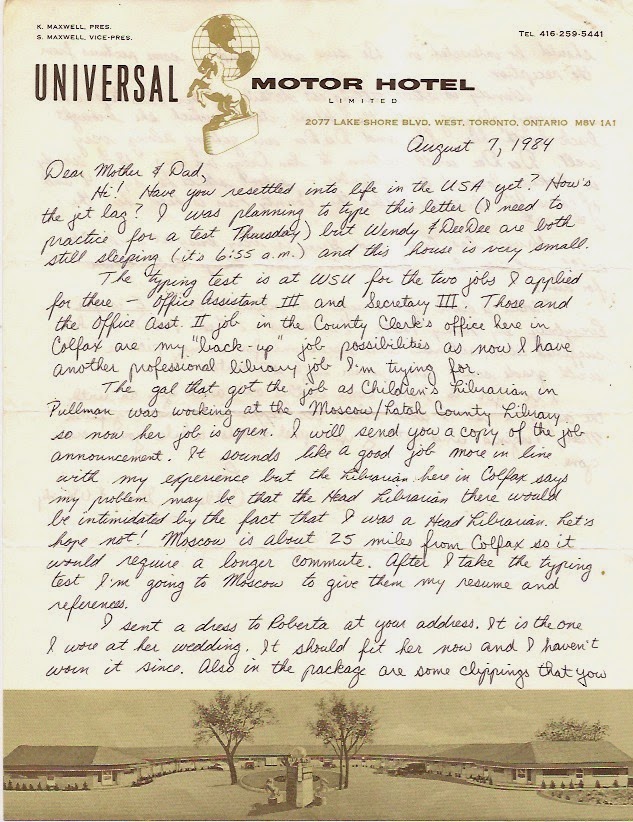 K. MAXWELL, PRES.
S. MAXWELL, VICE-PRES.
TEL 416-259-5441
UNIVERSAL MOTOR HOTEL
LIMITED
2077 LAKE SHORE BLVD, WEST, TORONTO, ONTARIO M8V 1A1
August 7, 1984
Dear Mother & Dad,
Hi! Have you resettled into life in the USA yet? How's
the jet lag? I was planning to type this letter (I need to
practice for a test Thursday) but Wendy & DeeDee are both
still sleeping (it's 6:55 a.m.) and this house is very small.
The typing test is at WSU for the two jobs I applied
for there - Office Assistant III and Secretary III. Those and
the Office Asst. II job in the County Clerk's office here in
Colfax are my "back-up" job possibilities as now I have
another professional library job I'm trying for.
The gal that got the job as Children's Librarian in
Pullman was working at the Moscow/Latah County Library
so now her job is open. I will send you a copy of the job
announcement. It sounds like a good job more in line
with my experience but the Librarian here in Colfax says
my problem may be that the Head Librarian there would
be intimidated by the fact that I was a Head Librarian. Let's
hope not! Moscow is about 25 miles from Colfax so it
would require a longer commute. After I take the typing
test I'm going to Moscow to give them my resume and
references.
I sent a dress to Roberta at your address. It is the one
I wore at her wedding. It should fit her now and I haven't
worn it since. Also in the package are some clippings that you